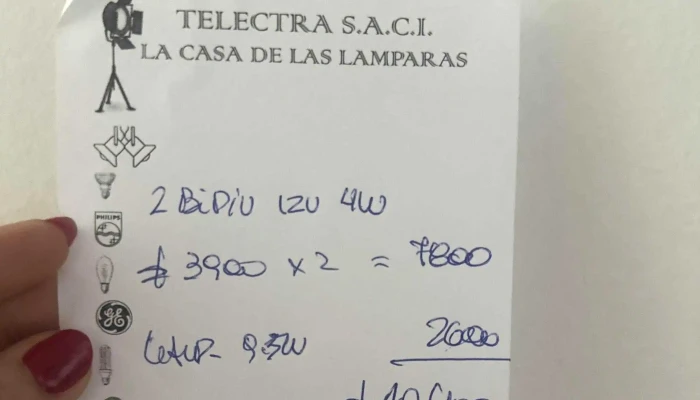 TELECTRA S.A.C.I.
LA CASA DE LAS LAMPARAS
2 BiPiN 12V 4W
PHILIPS
$ 3900 x 2 = 7800
9.5W 2600